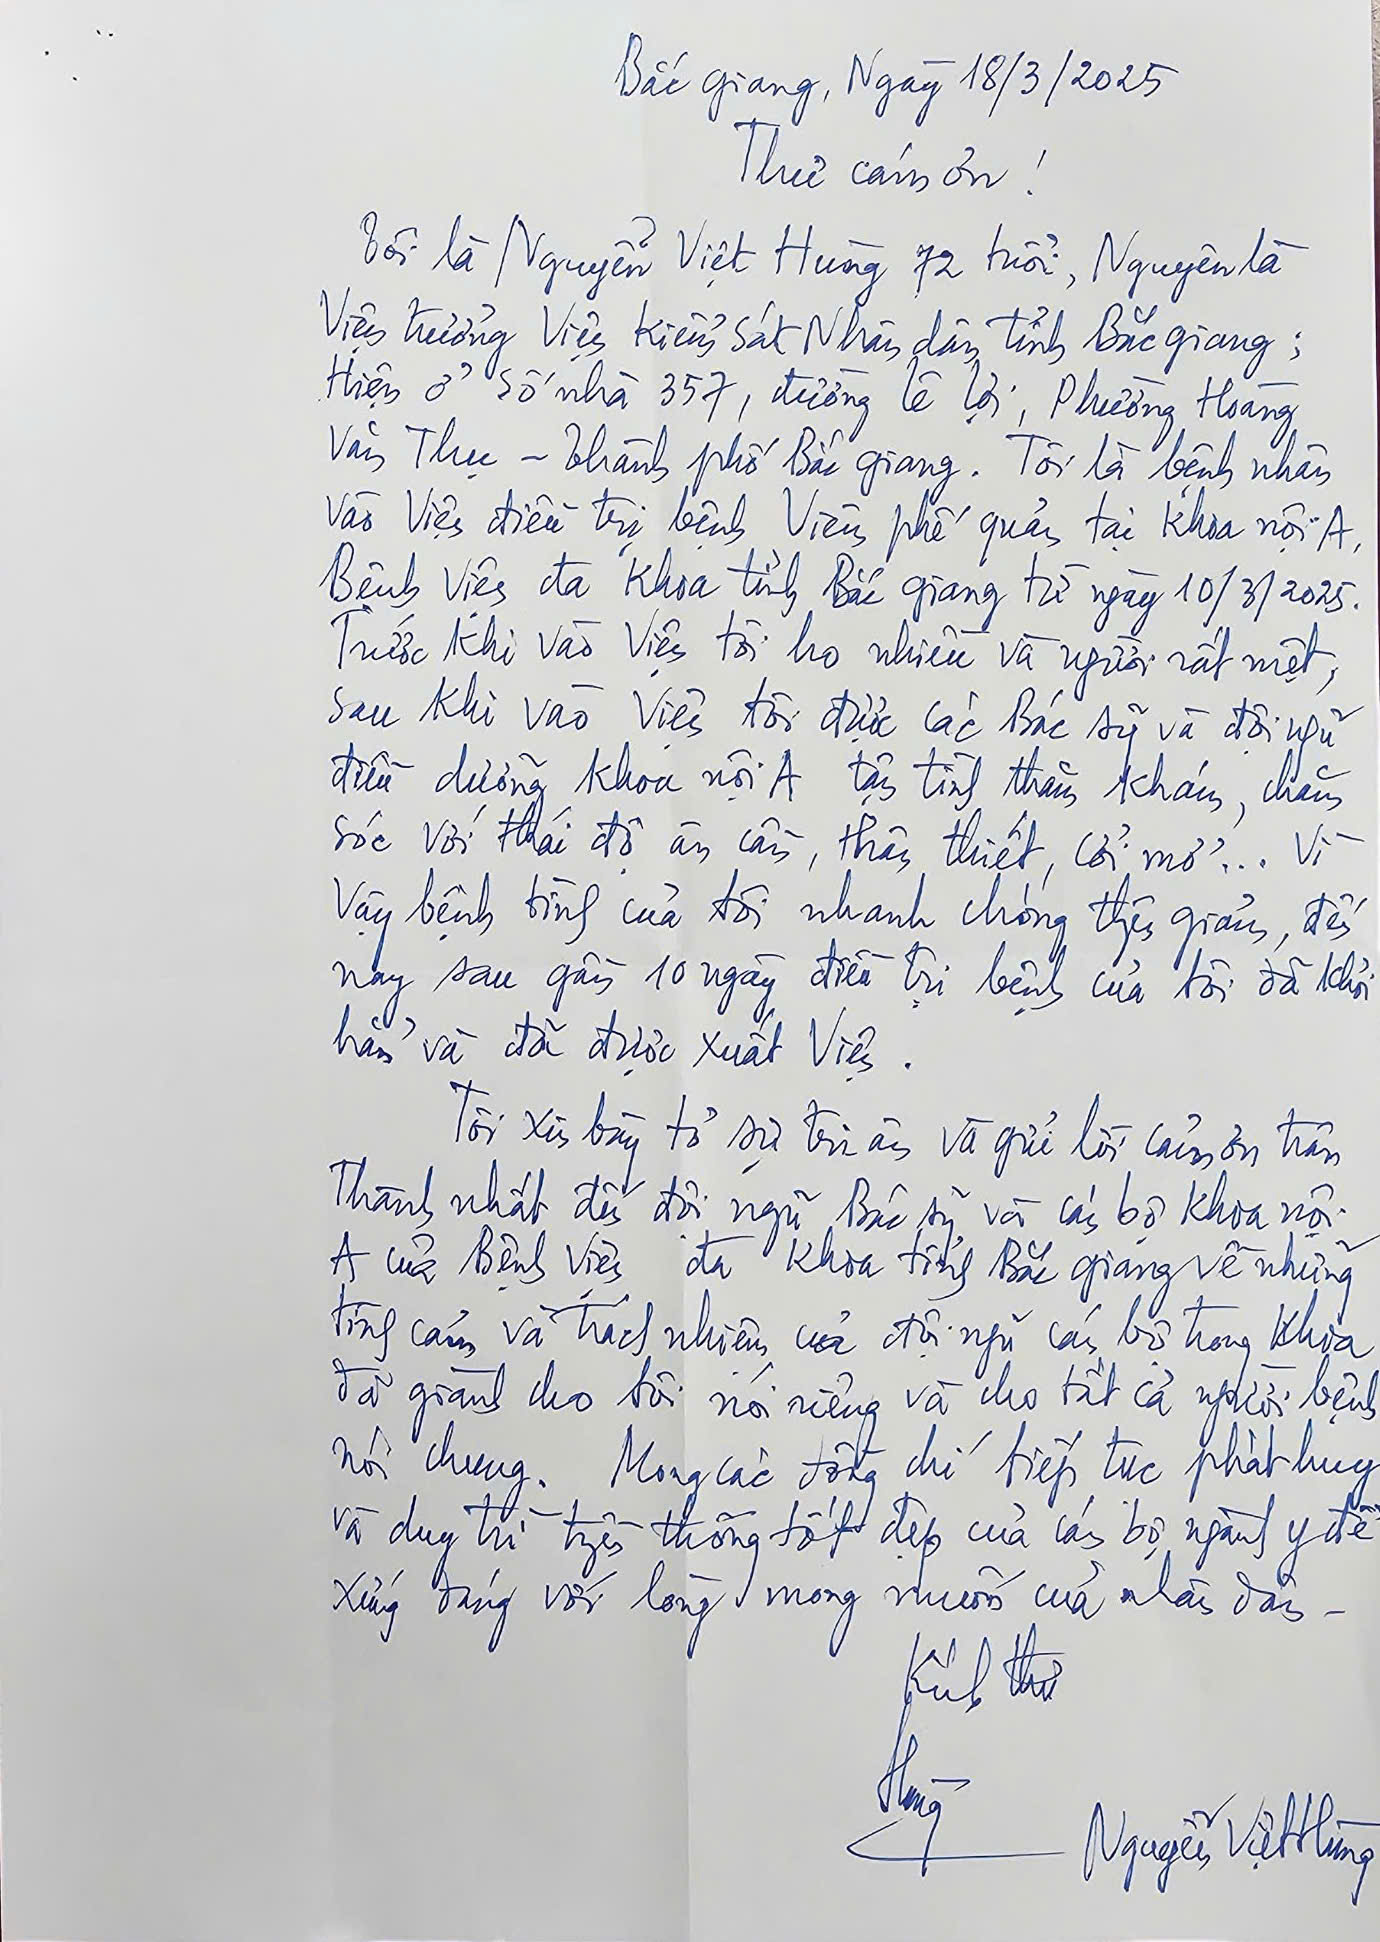 Bắc giang, Ngày 18/3/2025
Thư cảm ơn !
Tôi là Nguyễn Việt Hùng 72 tuổi, Nguyên là
Viện trưởng Viện Kiểm sát Nhân dân tỉnh Bắc giang ;
Hiện ở số nhà 357, đường lê lợi, Phường Hoàng
Văn Thụ - Thành phố Bắc giang. Tôi là bệnh nhân
vào Viện điều trị bệnh Viêm phế quản tại Khoa nội A,
Bệnh Viện đa Khoa tỉnh Bắc giang từ ngày 10/3/2025.
Trước khi vào Viện tôi ho nhiều và người rất mệt,
sau khi vào Viện tôi được các Bác sỹ và đội ngũ
điều dưỡng khoa nội A tận tình thăm khám, chăm
sóc với thái độ ân cần, thân thiết, cởi mở... Vì
Vậy bệnh tình của tôi nhanh chóng thuyên giảm, đến
nay sau gần 10 ngày điều trị bệnh của tôi đã khỏi
hẳn và đã được xuất Viện.
Tôi xin bày tỏ sự tri ân và gửi lời cảm ơn trân
Thành nhất đến đội ngũ Bác sỹ và cán bộ Khoa nội
A của Bệnh Viện đa Khoa tỉnh Bắc giang về những
tình cảm và trách nhiệm của đội ngũ cán bộ trong Khoa
đã giành cho tôi nói riêng và cho tất cả người bệnh
nói chung. Mong các đồng chí tiếp tục phát huy
và duy trì truyền thống tốt đẹp của cán bộ ngành y để
xứng đáng với lòng mong muốn của nhân dân -
Kính thư
Hùng
Nguyễn Việt Hùng